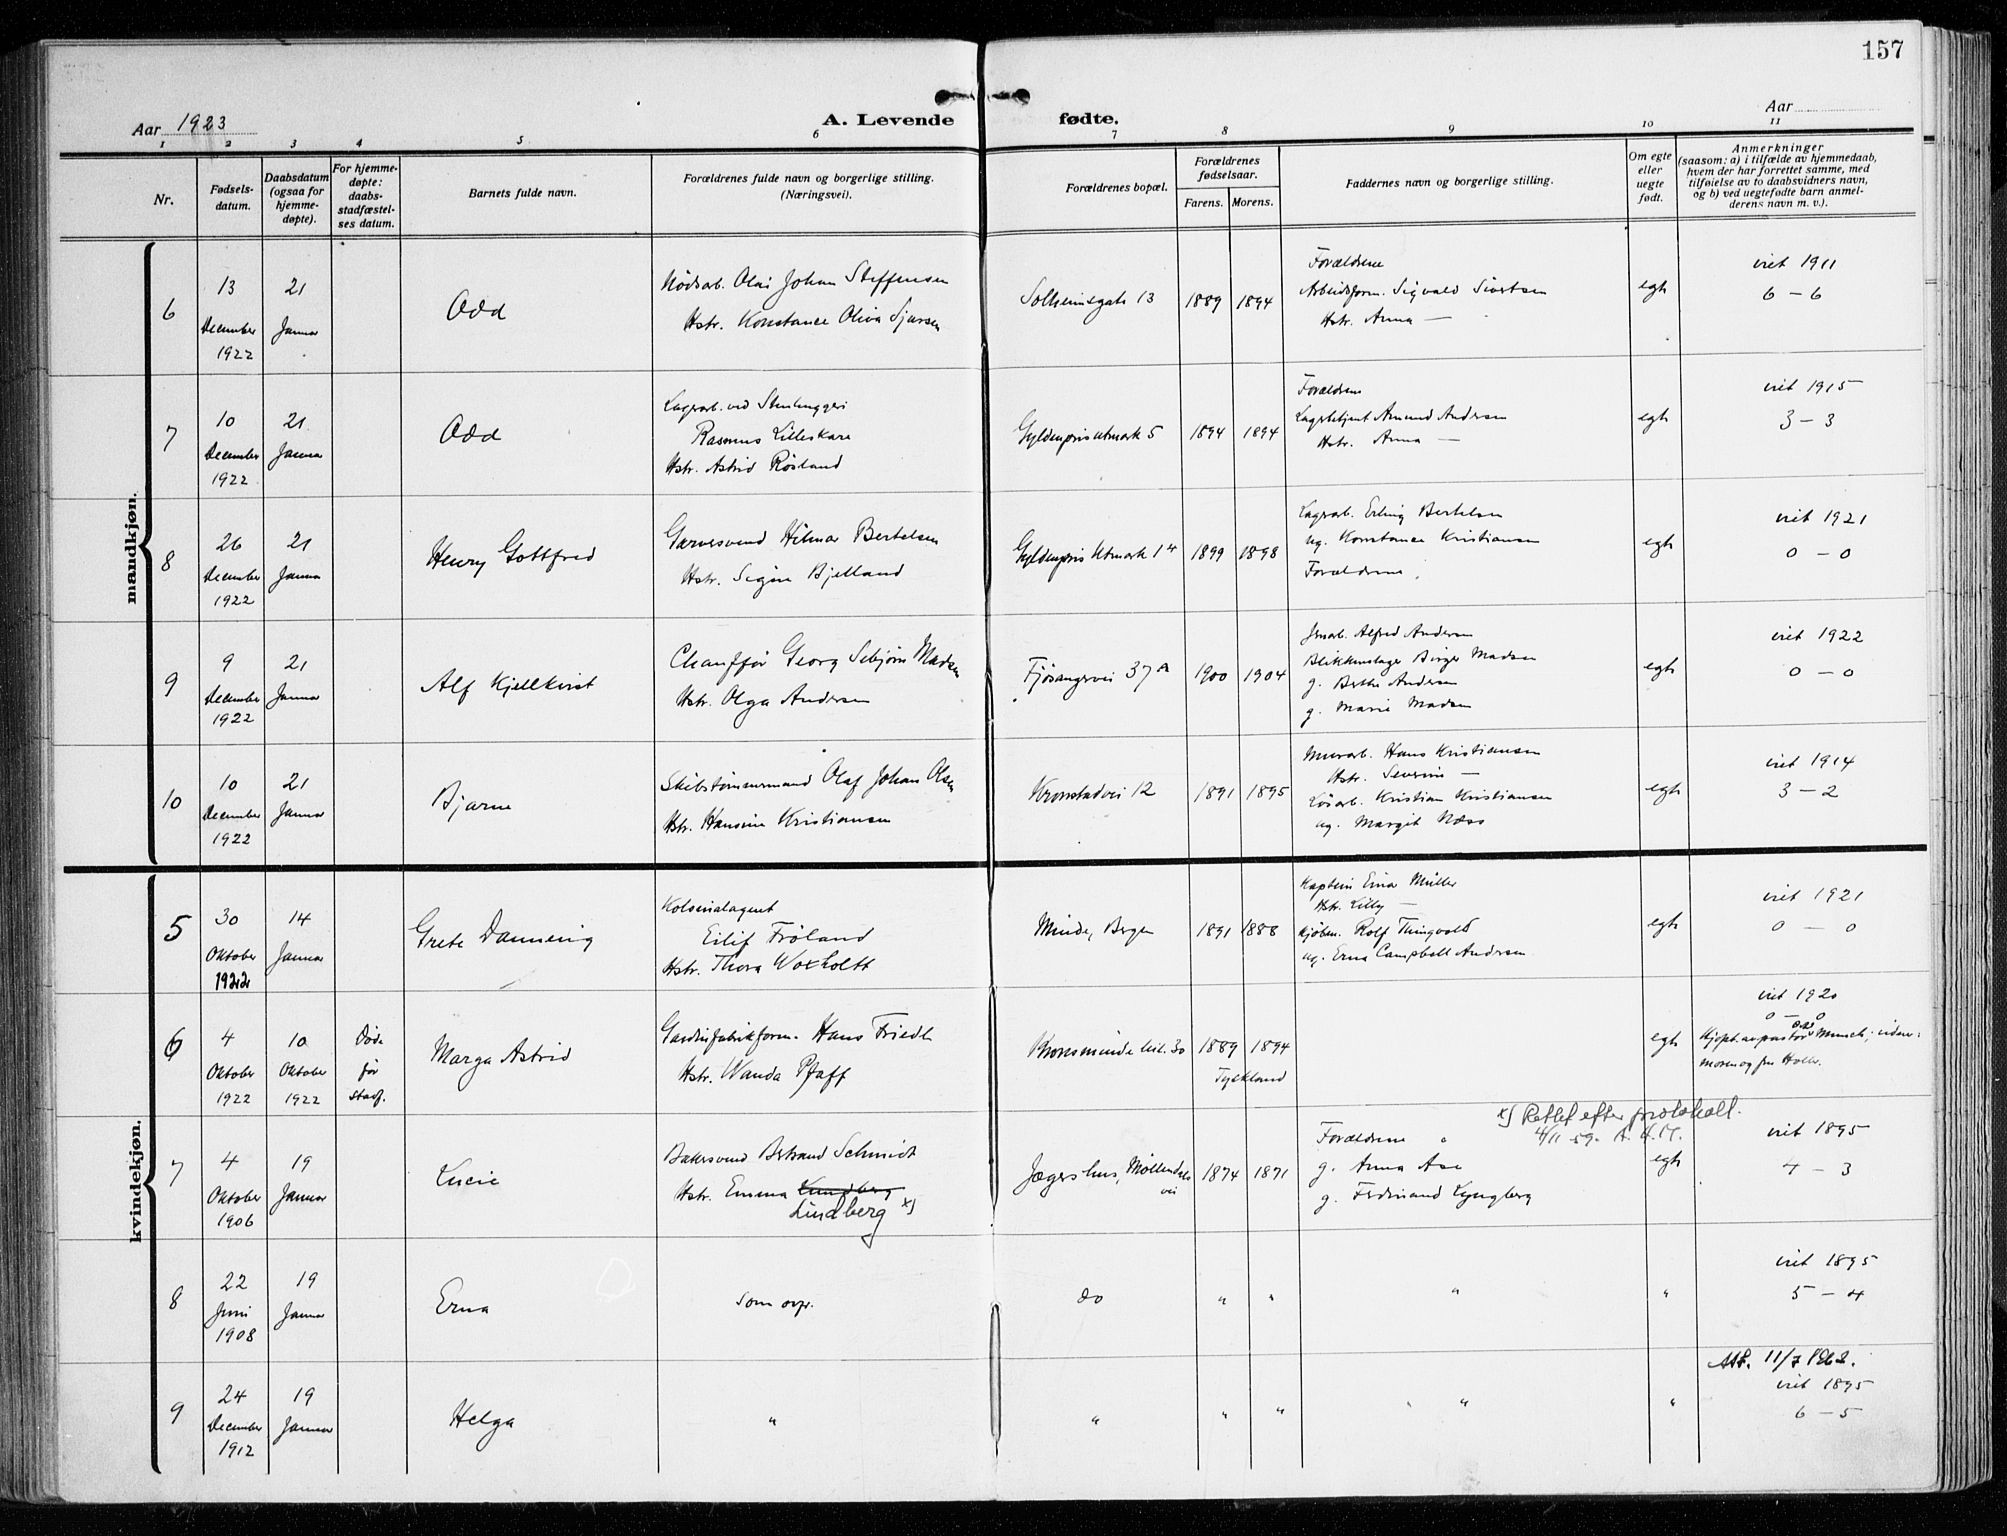 157
Aar 1923
A. Levende fødte.
Aar
1 2 3 4 5 6 7 8 9 10 11
Nr.
Fødsels-
datum.
Daabsdatum
(ogsaa for
hjemme-
døpte).
For hjemme-
døpte:
daabs-
stadfæstel-
ses datum.
Barnets fulde navn.
Forældrenes fulde navn og borgerlige stilling.
(Næringsvei).
Forældrenes bopæl.
Forældrenes
fødselsaar.
Farens. Morens.
Faddernes navn og borgerlige stilling.
Om egte
eller
uegte
født.
Anmerkninger
(saasom: a) i tilfælde av hjemmedaab,
hvem der har forrettet samme, med
tilføielse av to daabsvidners navn,
og b) ved uegtefødte barn anmel-
derens navn m. v.).
mandkjøn.
6
13
December
1922
21
Januar
Odd
Olai Johan Steffensen
Hstr. Konstance Oliva Sjursen
Solheimsgate 13
1889
1894
Forældrene
Arbeidsform. Sigvald Sivertsen
Hstr. Anna —
egte
viet 1911
6 – 6
7
10
December
1922
21
Januar
Odd
Lagerarb. ved Stenhuggeri
Rasmus Lilleskare
Hstr. Astrid Røsland
Gyldenpris utmark 5
1894
1894
Forældrene
Amund Andersen
Hstr. Anna —
egte
viet 1915
3 – 3
8
26
December
1922
21
Januar
Henry Gottfred
Garversvend Hilmar Bertelsen
Hstr. Signe Bjelland
Gyldenpris Utmark 14
1899
1898
Lagerarb. Erling Bertelsen
ug. Konstance Kristiansen
Forældrene
egte
viet 1921
0 – 0
9
9
December
1922
21
Januar
Alf Kjellkvist
Chauffør Georg Sebjørn Madsen
Hstr. Olga Andersen
Fjøsangervei 37A
1900
1904
Jernarb. Alfred Andersen
Blikkenslager Birger Madsen
g. Berthe Andersen
g. Marie Madsen
egte
viet 1922
0 – 0
10
10
December
1922
21
Januar
Bjarne
Skibstømmermand Olaf Johan Olsen
Hstr. Hansine Kristiansen
Kronstadvei 12
1891
1895
Murarb. Hans Kristiansen
Hstr. Severine —
Løsarb. Kristian Kristiansen
ug. Margit Næss
egte
viet 1914
3 – 2
kvindekjøn.
5
30
Oktober
1922
14
Januar
Grete Dannevig
Kolonialagent
Eilif Frøland
Hstr. Thora Woxholtt
Minde, Bergen
1891
1888
Kaptein Einar Müller
Hstr. Lilly —
Kjøbm. Rolf Thingvold
ug. Erna Campbell Andersen
egte
viet 1921
0 – 0
6
4
Oktober
1922
10
Oktober
1922
Døde
før
stadf.
Marga Astrid
Gardinfabrikform. Hans Friedl
Hstr. Wanda Pfaff
Kronsminde leil. 30
1889
1894
Tyskland
egte
viet 1920
0 – 0
Hjdpt. av pastor Munch; vidner:
moren og frk Holbr.
7
4
Oktober
1906
19
Januar
Lucie
Bakersvend Bertrand Schmidt
Hstr. Emma Lundberg
Lindberg x)
Jægershus, Møllendals
vei
1874
1871
x) Rettet efter protokoll.
4/11 59.
Forældrene
g. Anna Ase
g. Ferdinand Lyngberg
egte
viet 1895
4 – 3
8
22
Juni
1908
19
Januar
Erna
som ovfr.
do
"
"
"
"
viet 1895
5 – 4
9
24
December
1912
19
Januar
Helga
"
"
"
"
"
"
Att. 11/7 1962.
viet 1895
6 – 5